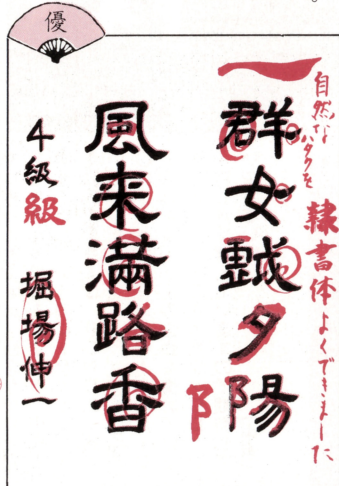 優
自然な
隷書体よくできました
一
群女戲夕陽
阝
風来満路香
4級級
堀場伸一